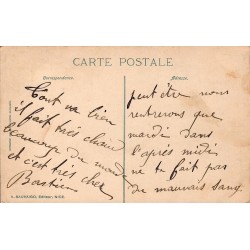 CARTE POSTALE
Correspondance
Adresse
Tout va bien
il fait très chaud
beaucoup de monde
et c'est très cher
Bastien
peut être nous
rentrerons que
mardi dans
l'après midi
ne te fait pas
de mauvais sang
Éditeur, NICE.